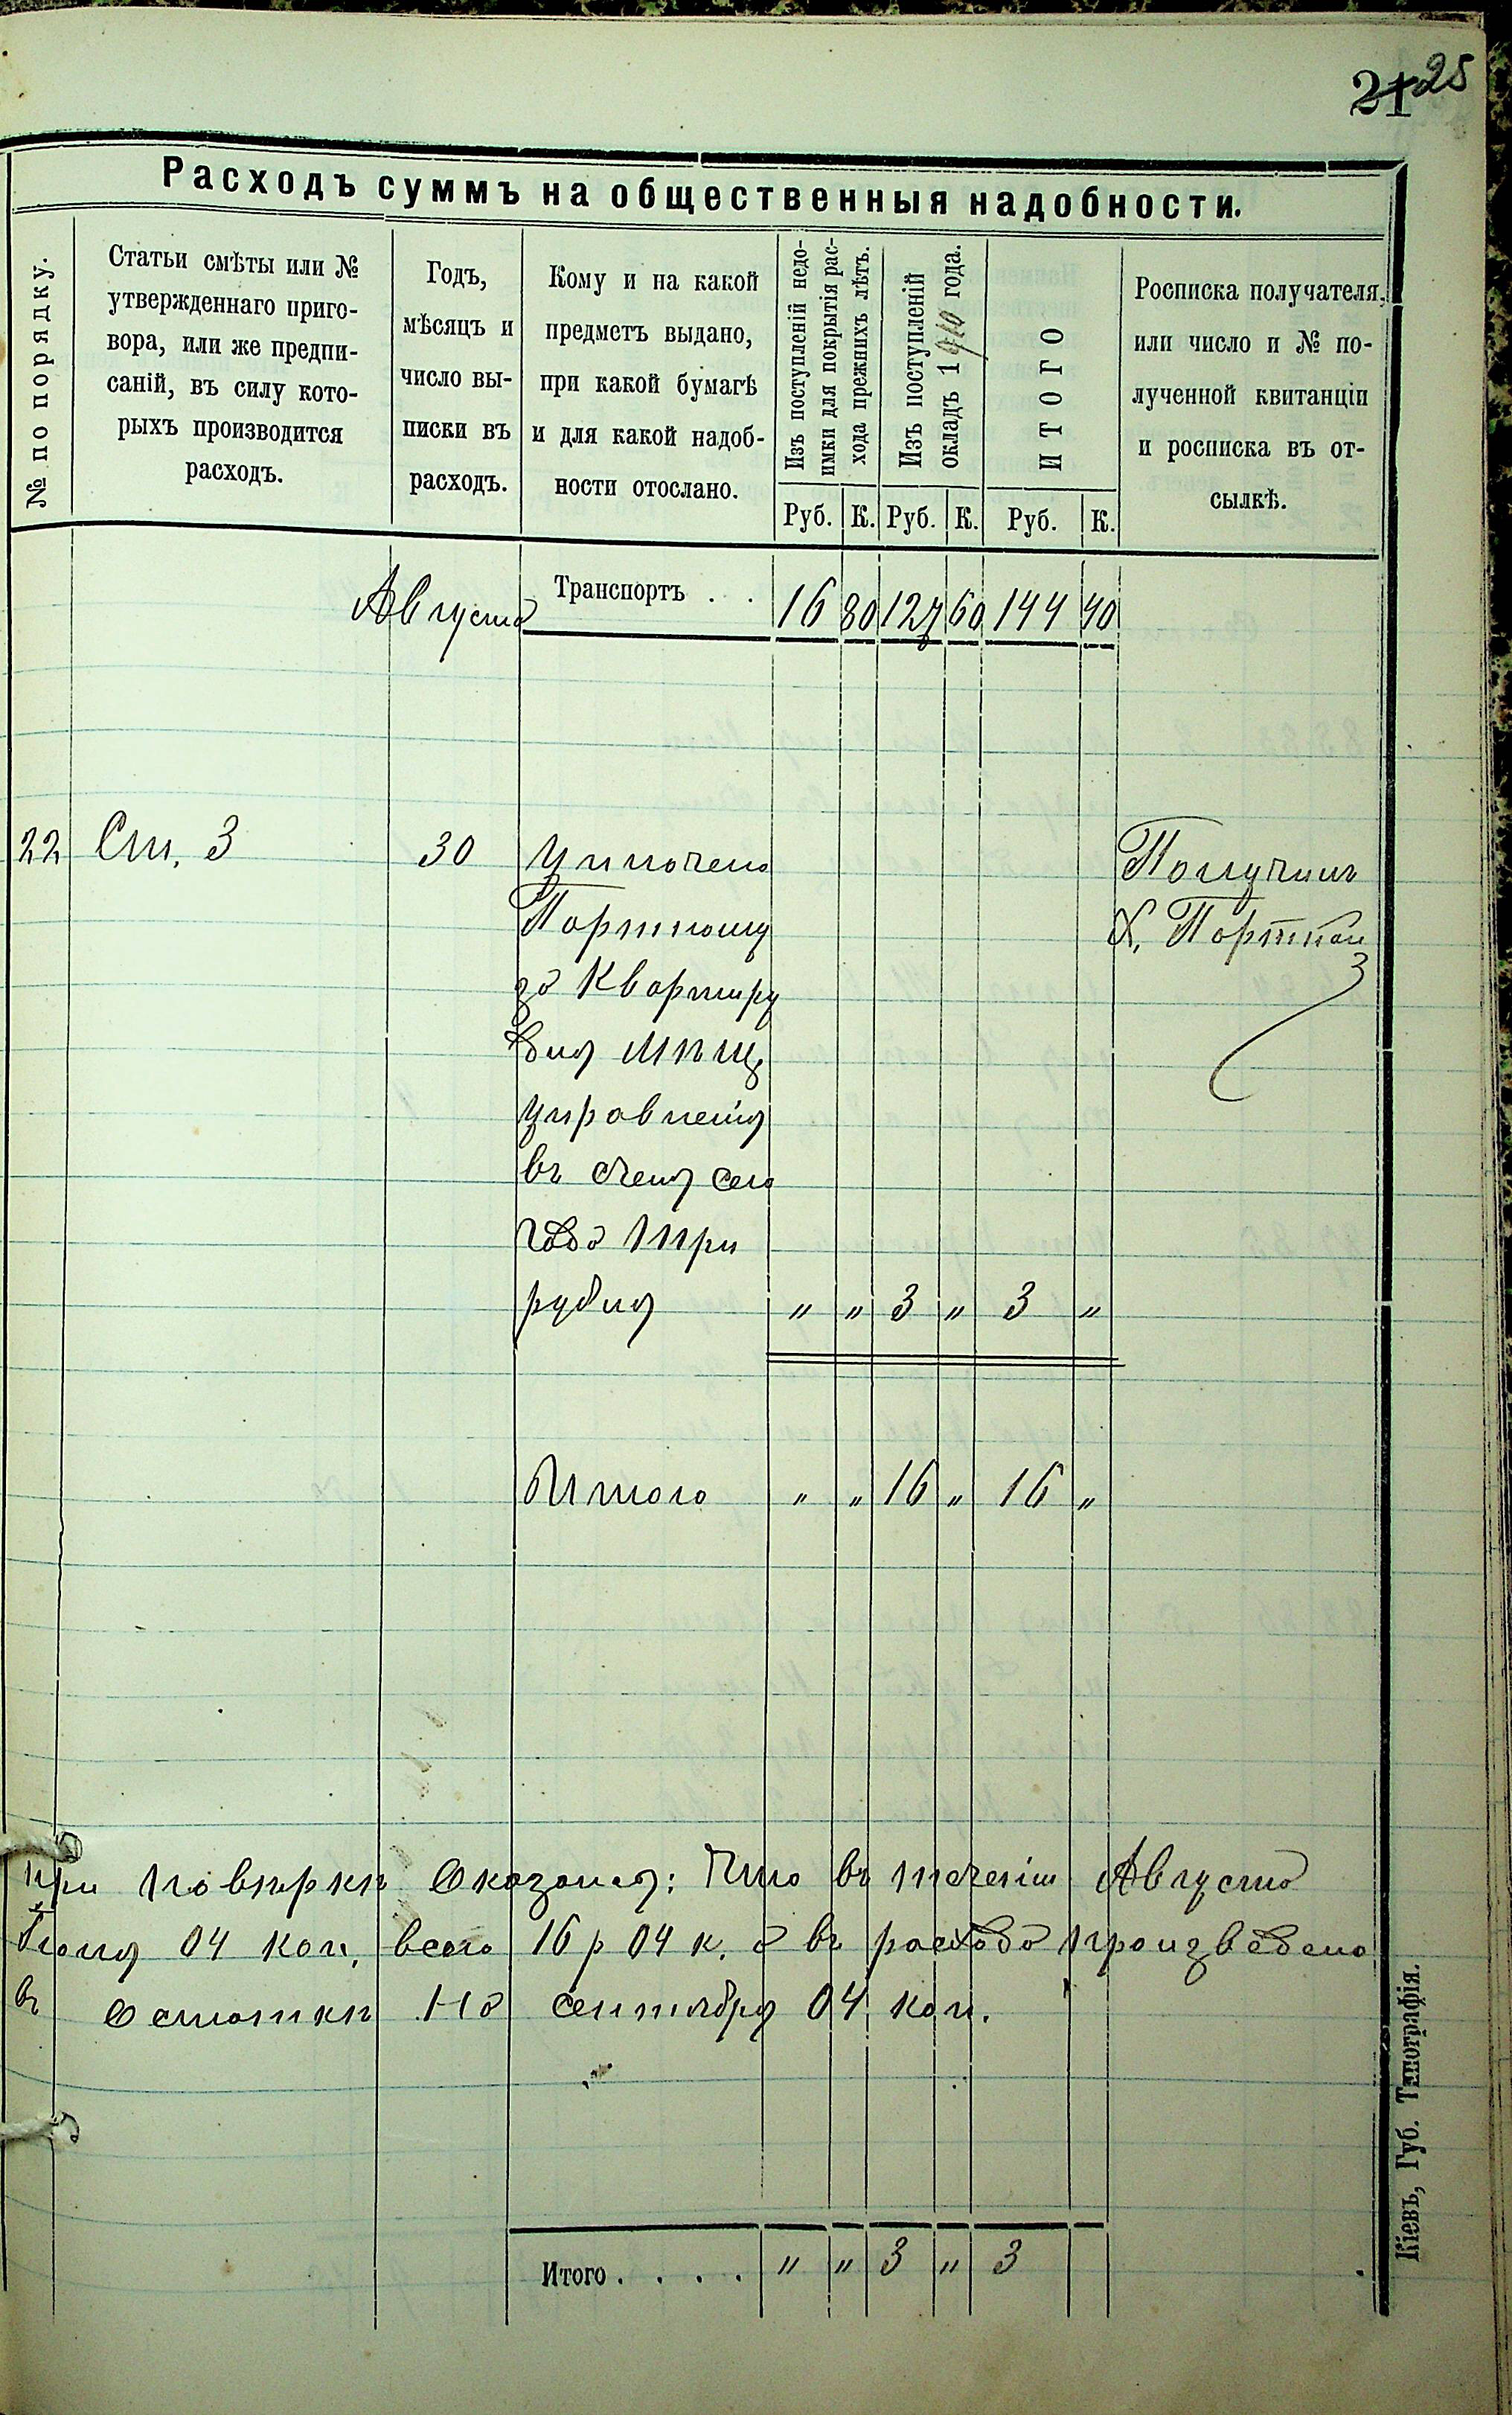 21 25
Расходъ суммъ на общественныя надобности.
№ по порядку.
Статьи смѣты или №
утвержденнаго приго-
вора, или же предпи-
саній, въ силу кото-
рыхъ производится
расходъ.
Годъ,
мѣсяцъ и
число вы-
писки въ
расходъ.
Кому и на какой
предметъ выдано,
при какой бумагѣ
и для какой надоб-
ности отослано.
Изъ поступленій недо-
имки для покрытія рас-
хода прежнихъ лѣтъ.
Изъ поступленій
окладъ 1910 года.
ИТОГО
Росписка получателя,
или число и № по-
лученной квитанціи
и росписка въ от-
сылкѣ.
Руб. К. Руб. К. Руб. К.
Августа Транспортъ . . 16 80 127 60 144 40
22 Ст. 3 30 Уплочено Получилъ
Портному Х. Портной
за Квартиру
для Мѣщ.
управленія
въ счетъ сего
года три
рубля " " 3 " 3 "
Итого " " 16 " 16 "
при повѣркѣ Оказалось: Что въ теченіи Августа
04 коп, всего 16 р 04 к. а въ расходъ произведено
въ Остаткѣ На сентябрь 04 коп.
Итого . . . . " " 3 " 3
Кіевъ, Губ. Типографія.